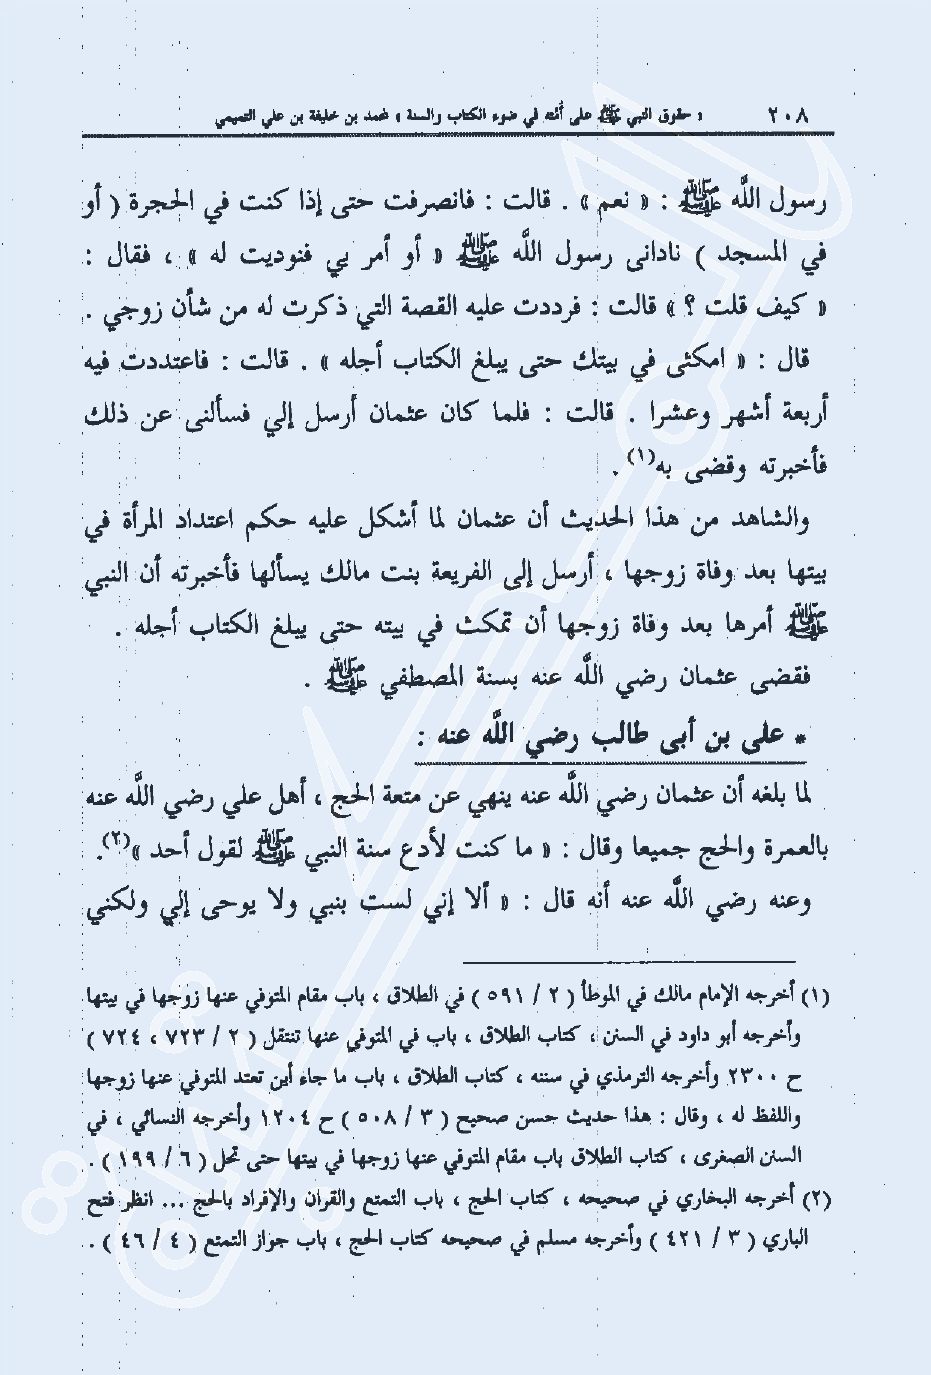 ٢٠٨ « حقوق النبي ﷺ على أمته في ضوء الكتاب والسنة » محمد بن خليفة بن علي التميمي
رسول اللَّه ﷺ : « نعم » . قالت : فانصرفت حتى إذا كنت في الحجرة ( أو
في المسجد ) نادانى رسول اللَّه ﷺ « أو أمر بي فنوديت له » ، فقال :
« كيف قلت ؟ » قالت : فرددت عليه القصة التي ذكرت له من شأن زوجي .
قال : « امكثى في بيتك حتى يبلغ الكتاب أجله » . قالت : فاعتددت فيه
أربعة أشهر وعشرا . قالت : فلما كان عثمان أرسل إلي فسألنى عن ذلك
فأخبرته وقضى به(١) .
والشاهد من هذا الحديث أن عثمان لما أشكل عليه حكم اعتداد المرأة في
بيتها بعد وفاة زوجها ، أرسل إلى الفريعة بنت مالك يسألها فأخبرته أن النبي
ﷺ أمرها بعد وفاة زوجها أن تمكث في بيته حتى يبلغ الكتاب أجله .
فقضى عثمان رضي اللَّه عنه بسنة المصطفي ﷺ .
* على بن أبى طالب رضي اللَّه عنه :
لما بلغه أن عثمان رضي اللَّه عنه ينهي عن متعة الحج ، أهل علي رضي اللَّه عنه
بالعمرة والحج جميعا وقال : « ما كنت لأدع سنة النبي ﷺ لقول أحد »(٢).
وعنه رضي اللَّه عنه أنه قال : « ألا إني لست بنبي ولا يوحى إلي ولكني
(١) أخرجه الإمام مالك في الموطأ ( ٢ / ٥٩١ ) في الطلاق ، باب مقام المتوفي عنها زوجها في بيتها
وأخرجه أبو داود في السنن ، كتاب الطلاق ، باب في المتوفي عنها تنتقل ( ٢ / ٧٢٣ ، ٧٢٤ )
ح ٢٣٠٠ وأخرجه الترمذي في سننه ، كتاب الطلاق ، باب ما جاء أين تعتد المتوفي عنها زوجها
واللفظ له ، وقال : هذا حديث حسن صحيح ( ٣ / ٥٠٨ ) ح ١٢٠٤ وأخرجه النسائي ، في
السنن الصغرى ، كتاب الطلاق باب مقام المتوفي عنها زوجها في بيتها حتى تحل ( ٦ / ١٩٩ ) .
(٢) أخرجه البخاري في صحيحه ، كتاب الحج ، باب التمتع والقران والإفراد بالحج ... انظر فتح
الباري ( ٣ / ٤٢١ ) وأخرجه مسلم في صحيحه كتاب الحج ، باب جواز التمتع ( ٤ / ٤٦ ) .